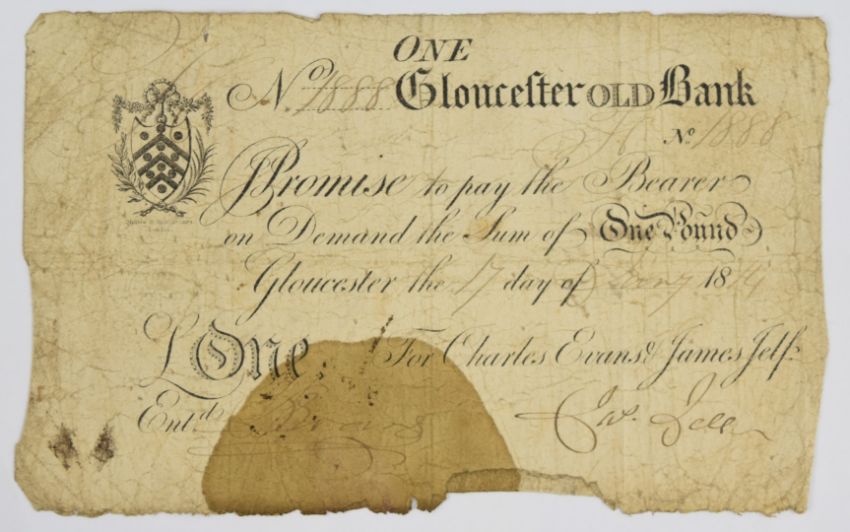 ONE
No 1888 Gloucester OLD Bank
No 1888
I Promise to pay the Bearer
on Demand the Sum of One Pound
Gloucester the 17 day of 18
£ One For Charles Evans & James Jelf
Entd
Jas. Jelf